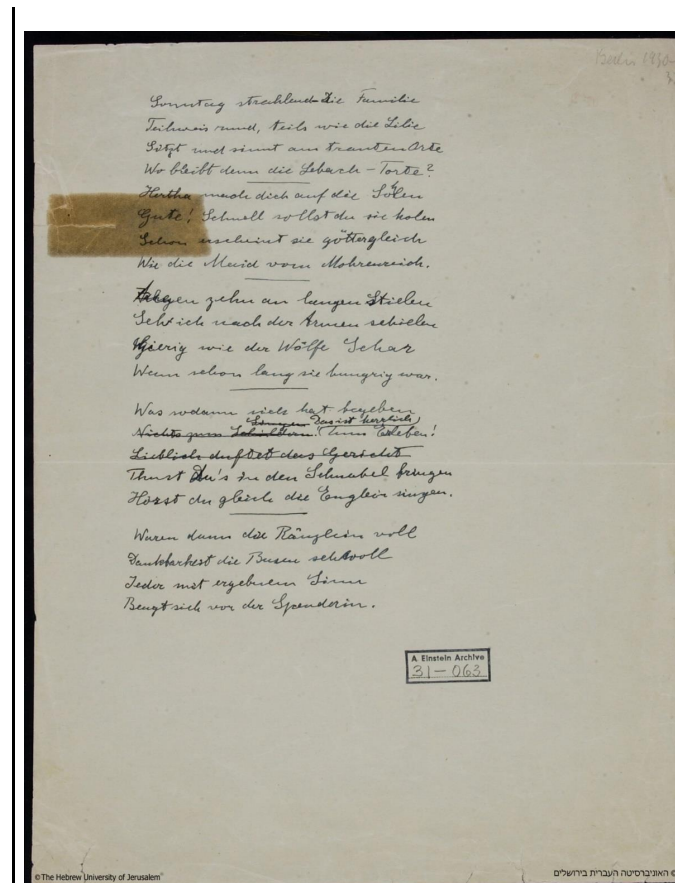 Berlin 1930
Sonntag strahlend die Familie
Teilweis rund, teils wie die Lilie
Sitzt und sinnt am trauten Orte
Wo bleibt denn die Lebach-Torte?
Hertha mach dich auf die Solen
Gute! Schnell sollst du sie holen
Schon erscheint sie göttergleich
Wie die Maid vom Mohrenreich.
Augen zehn an langen Stielen
Seh' ich nach der Armen schielen
Gierig wie der Wölfe Schar
Wenn schon lang sie hungrig war.
Was sodann sich hat begeben
Singen Das ist herrlich
Nichts zum Schildern! Zum Erleben!
Lieblich duftet das Gericht
Thust Du's in den Schnabel bringen
Hörst du gleich die Englein singen.
Waren dann die Ränzlein voll
Dankbarkeit die Busen schwoll
Jeder mit ergebnem Sinn
Beugt sich vor der Spenderin.
A Einstein Archive
31-063
©The Hebrew University of Jerusalem
© האוניברסיטה העברית בירושלים